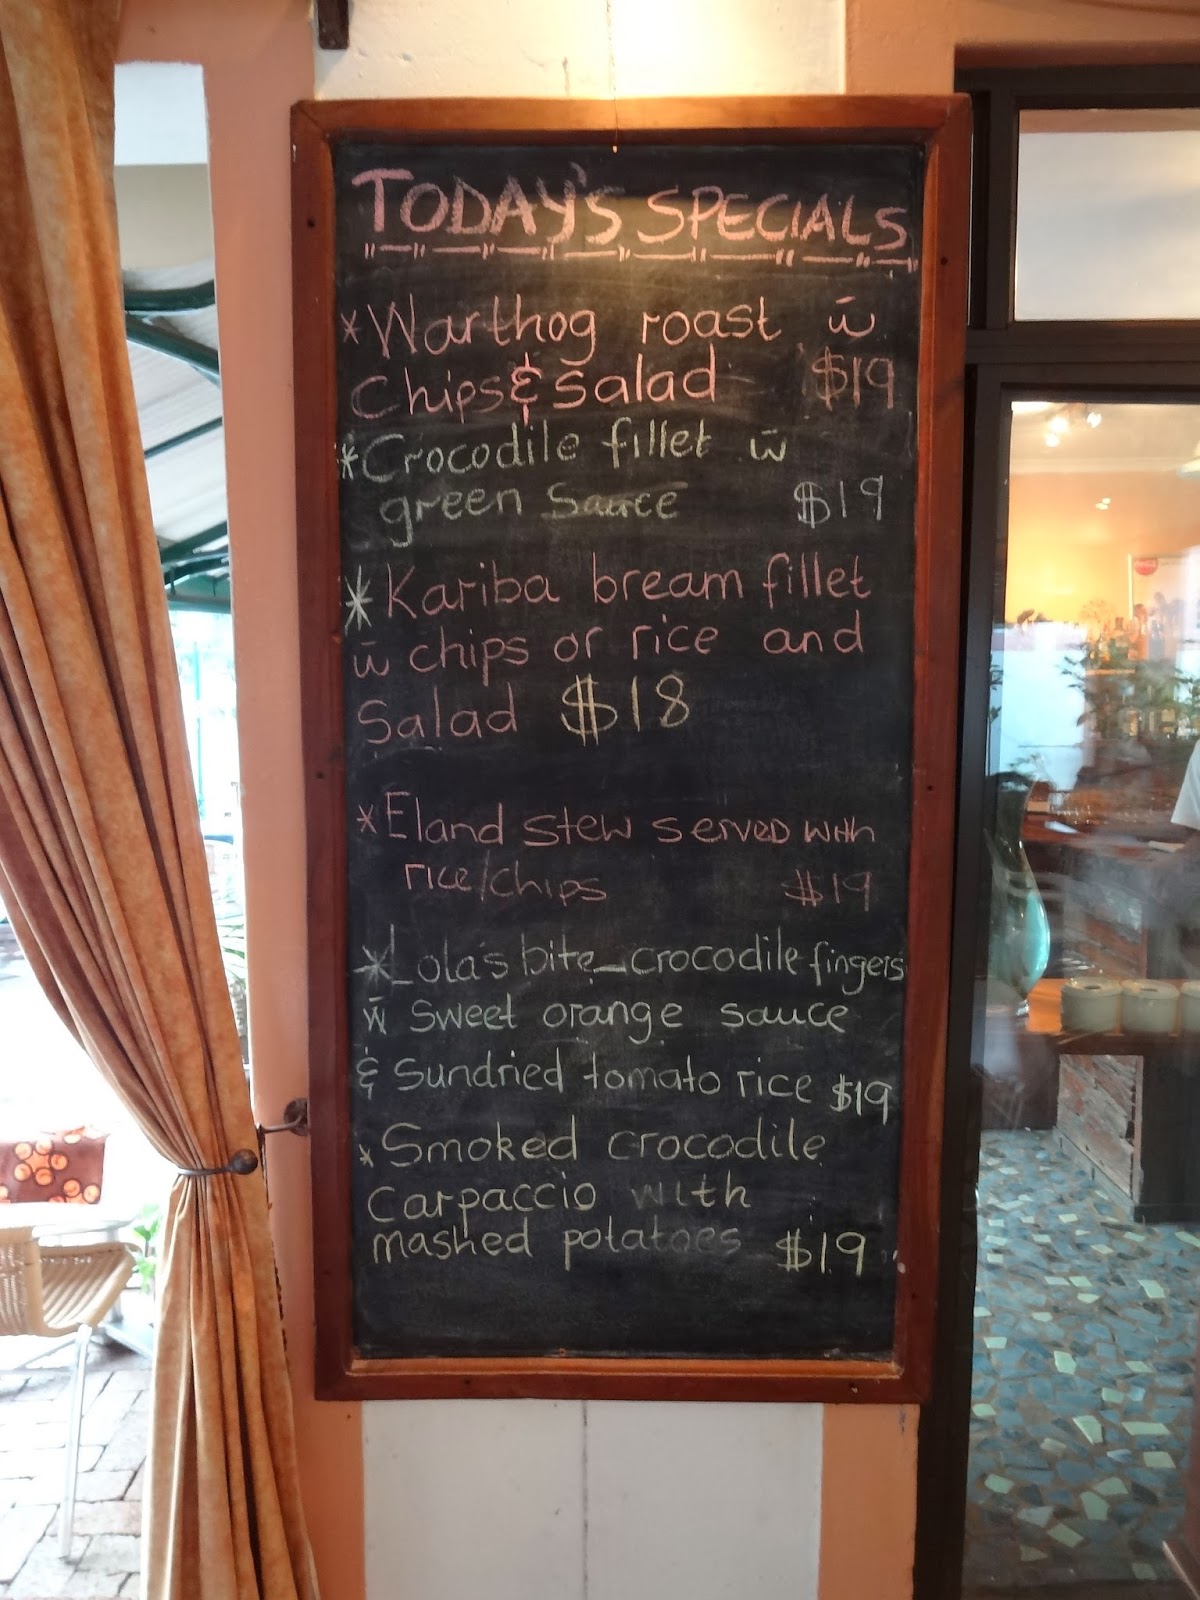 TODAY'S SPECIALS
*Warthog roast w̄
Chips & Salad $19
*Crocodile fillet w̄
green Sauce $19
*Kariba bream fillet
w̄ chips or rice and
Salad $18
*Eland stew served with
rice/chips $19
*Lola's bite_crocodile fingers
w̄ Sweet orange sauce
& Sundried tomato rice $19
*Smoked crocodile
Carpaccio with
mashed potatoes $19